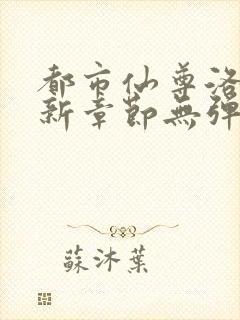 都市仙尊洛
新章節無彈
蘇沐葉